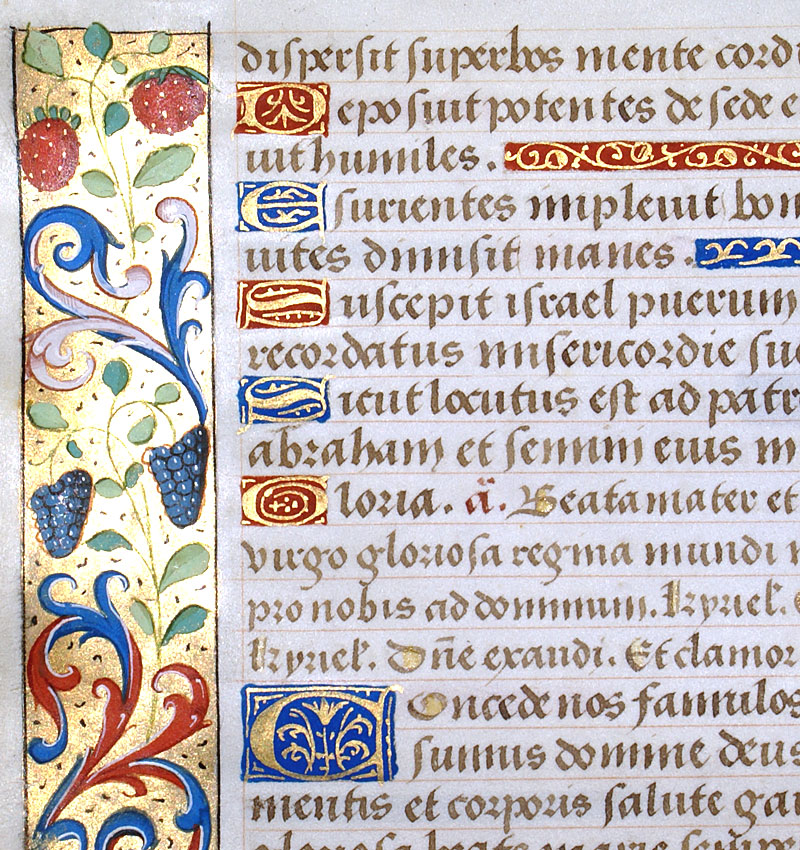 dispersit superbos mente cord
Deposuit potentes de sede e
uit humiles.
Esurientes impleuit bon
uites dimisit inanes.
Suscepit israel puerum
recordatus misericordie su
Sicut locutus est ad patr
abraham et semini eius
Gloria. a. Beata mater et
virgo gloriosa regina mundi
pro nobis ad dominum. kyriel.
kyriel. Dñe exaudi. Et clamor
Concede nos famulos
sumus domine deus
mentis et corporis salute gau